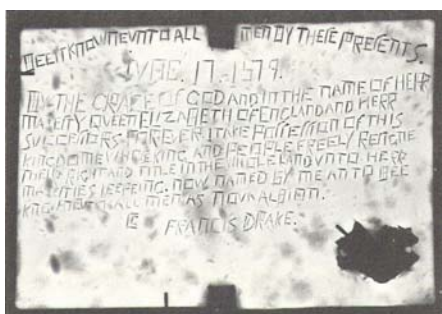 BEE IT KNOWNE VNTO ALL MEN BY THESE PRESENTS.
IVNE. 17. 1579.
BY THE GRACE OF GOD AND IN THE NAME OF HERR
MAIESTY QVEEN ELIZABETH OF ENGLAND AND HERR
SVCCESSORS FOREVER I TAKE POSSESSION OF THIS
KINGDOME WHOSE KING AND PEOPLE FREELY RESIGNE
THEIR RIGHT AND TITLE IN THE WHOLE LAND VNTO HERR
MAIESTIES KEEPEING. NOW NAMED BY ME AN TO BEE
KNOWNE VNTO ALL MEN AS NOVA ALBION.
G FRANCIS DRAKE.